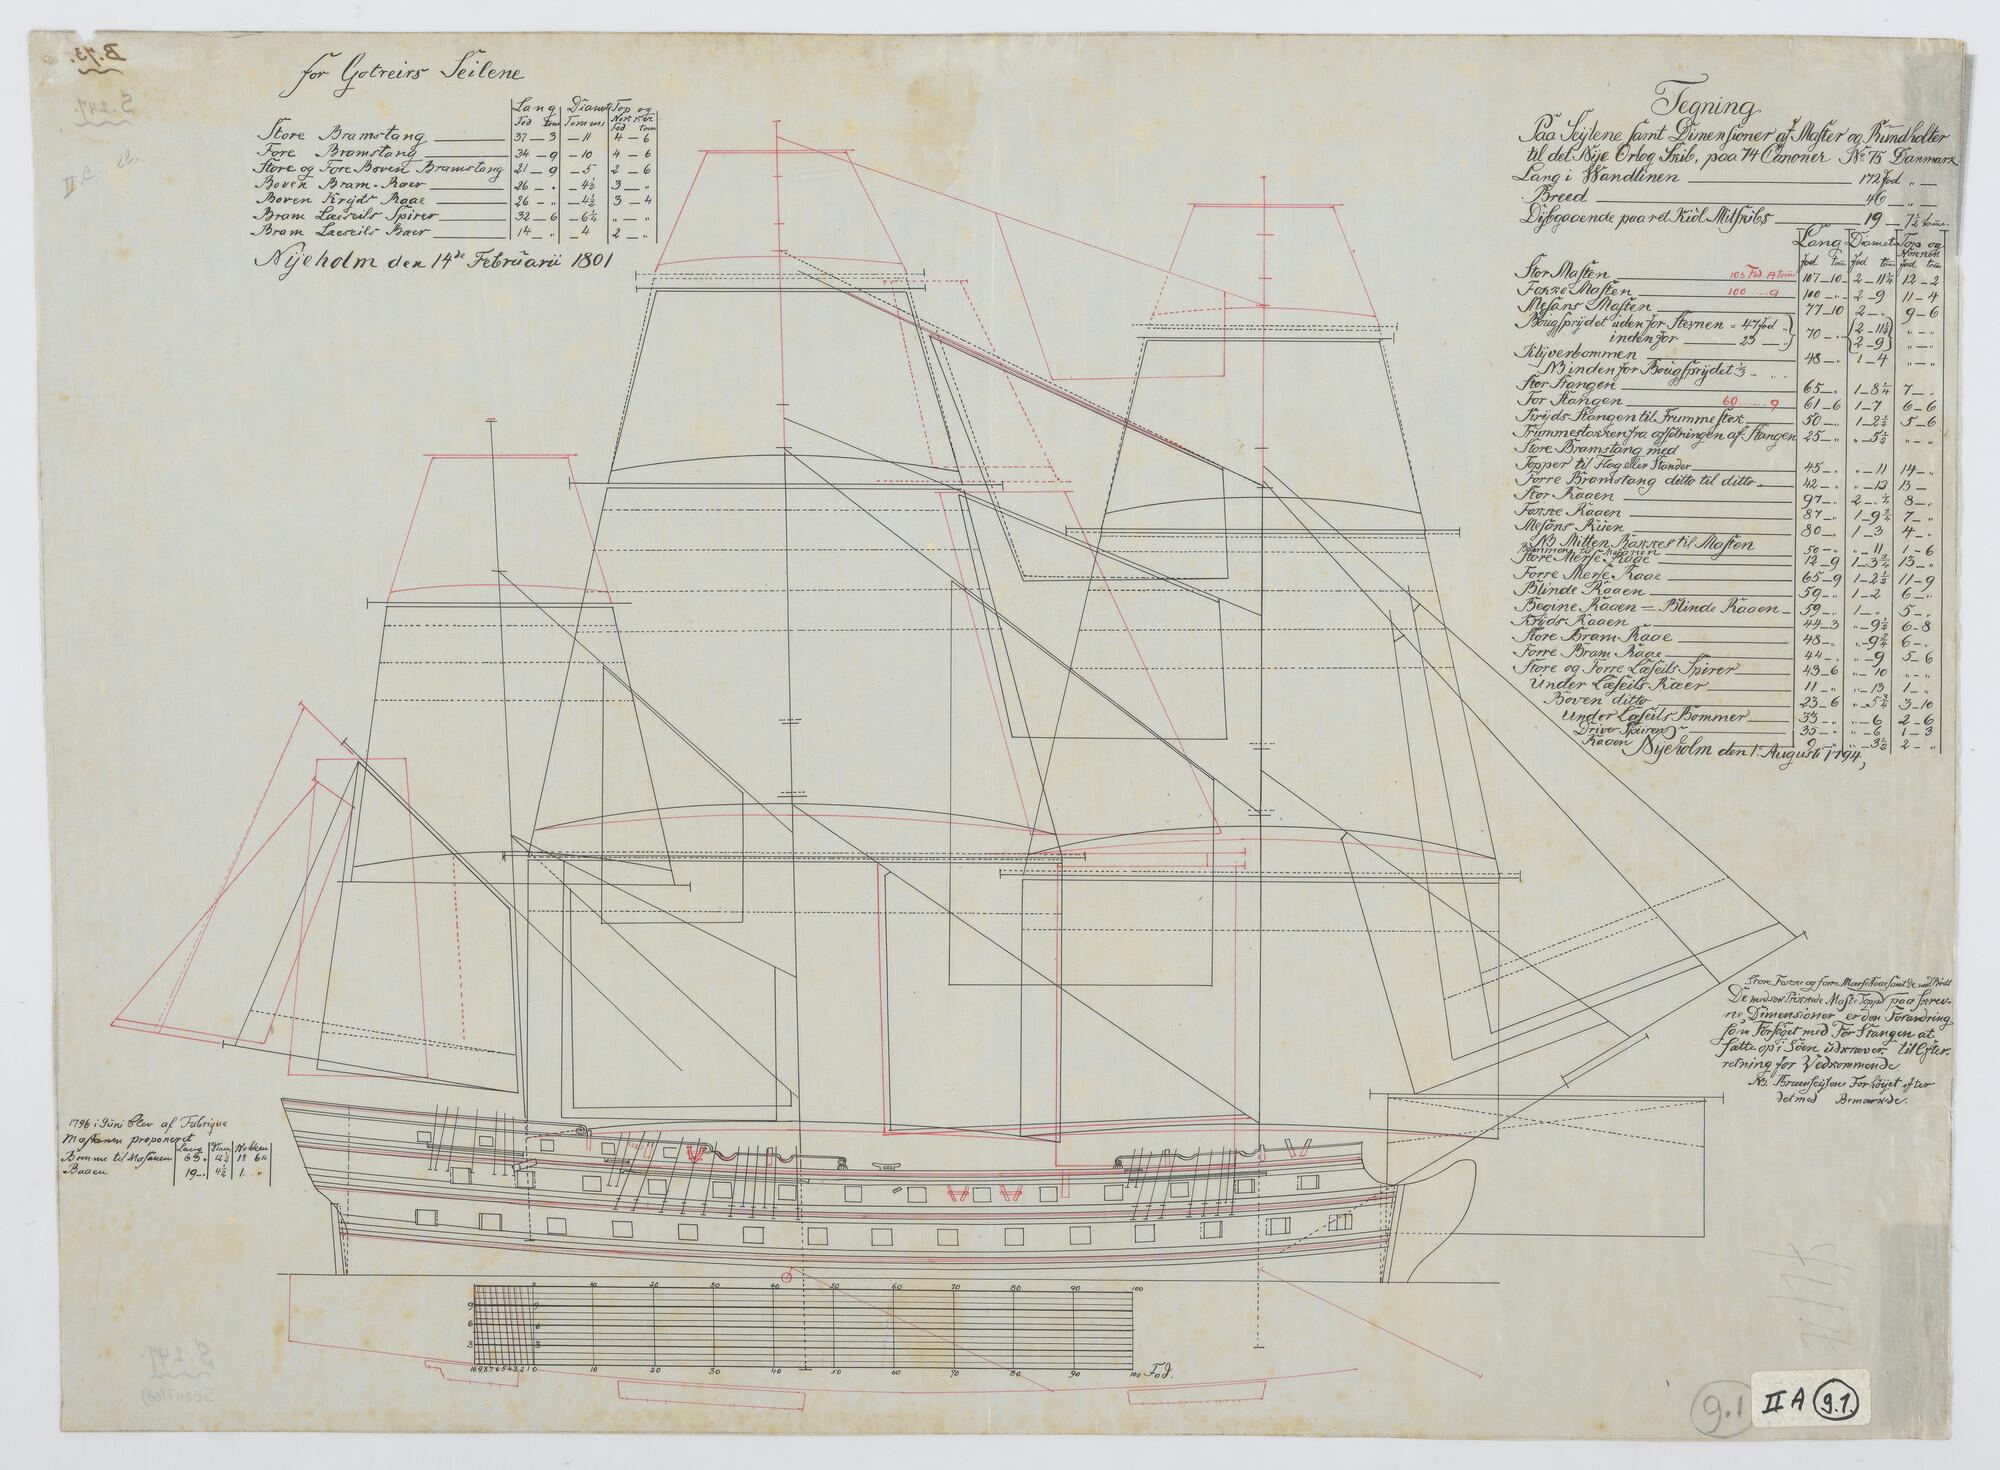 for Gotreirs Seilene
Lang Diamt Top og
Fod tom Tomme Fod tom
Store Bramstang 37 — 3 — 11 4 — 6
Fore Bramstang 34 — 9 — 10 4 — 6
Store og Fore Boven Bramstang 21 — 9 — 5 2 — 6
Boven Bram-Raer 26 — „ — 4½ 3 — „
Boven Krijds Raae 26 — „ — 4½ 3 — 4
Bram Læeseils Spirer 32 — 6 — 6¼ „ — „
Bram Læeseils Raer 14 — „ — 4 2 — „
Nijeholm den 14de Februarii 1801
Tegning
Paa Sejlene samt Dimensioner af Master og Rundholter
til det Nije Orlog Skib, paa 74 Canoner No 75 Danmark
Lang i Wandlinen 172 fod „ —
Breed 46 „ —
Dijbgaaende paa ret Kiöl Mitskibs 19 — 7½ tom.
Lang Diamet Top og Nokken
fod tom fod tom fod tom
Stor Masten 105 Fod 107 — 10 2 — 11¼ 12 — 2
Fokke Masten 100 ... 9 100 — „ 2 — 9 11 — 4
Mesans Masten 77 — 10 2 — „ 9 — 6
Bougsprijdet uden for Stevnen = 47 fod 70 — „ 2 — 11¼ „ — „
inden for 23 — „ 2 — 9 „ — „
Klijverbommen 48 — „ 1 — 4 „ — „
NB inden for Bougsprijdet ⅓
Stor Stangen 65 — „ 1 — 8¼ 7 — „
For Stangen 60 ... 9 61 — 6 1 — 7 6 — 6
Krijds Stangen til Trummestok 50 — „ 1 — 2½ 5 — 6
Trummestokken fra afsætningen af Stangen 25 — „ „ — 5½ „ — „
Store Bramstang med
Topper til Flag eller Stander 45 — „ „ — 11 14 — „
Forre Bramstang ditto til ditto 42 — „ „ — 13 —
Stor Raaen 97 — „ 2 — 8 — „
Fokke Raaen 87 — „ 1 — 9¾ 7 — „
Mesans Ruen 80 — „ 1 — 3 4 — „
NB Mitten Rakkes til Masten
Bommen til Mesanen 50 — „ „ — 11 1 — 6
Store Merse Raae 1 — 3¾ 13 — „
Forre Merse Raae 65 — 9 1 — 2½ 11 — 9
Blinde Raaen 59 — „ 1 — 2 6 — „
Begine Raaen = Blinde Raaen 59 — „ 1 — „ 5 — „
Krijds Raaen 44 — 3 „ — 9½ 6 — 8
Store Bram Raae 48 — „ „ — 9¾ 6 — „
Forre Bram Raae 44 — „ „ — 9 5 — 6
Store og Forre Læseils Spirer 43 — 6 „ — 10 „ — „
Under Læseils Raer 11 — „ „ — 13 1 — „
Boven ditto 23 — 6 „ — 5¾ 3 — 10
Under Læseils Bommer 33 — „ „ — 6 2 — 6
Driver Spiiren 35 — „ „ — 6 1 — 3
Raaen 9 — „ „ — 3½ 2 — „
Nijeholm den 1. Augusti 1794,
Store Fokke og forre Mærse Raae samt de med Rödt
De med sort Mastetopp paa skrev-
ne Dimensioner er den Forandring
som Forsöget med For Stangen at
sætte op i Söen udkræver til Efter-
retning for Vedkommende.
Nb. Bramseijlene Forhöijet efter
det med Bemærkede.
1796 i Juni blev af Fabrique
Mesteren proponeret
Lang Diam Nokken
Bomme til Mesanen 63 „ 12½ 18 6
Raaen 19 — „ 4½ 1. „
0 10 20 30 40 50 60 70 80 90 100
9 9
6 6
3 3
10 9 8 7 6 5 4 3 2 1 0 10 20 30 40 50 60 70 80 90 100 Fod.
B. 73.
S. 247.
S. 247.
9.1
II A 9.1.